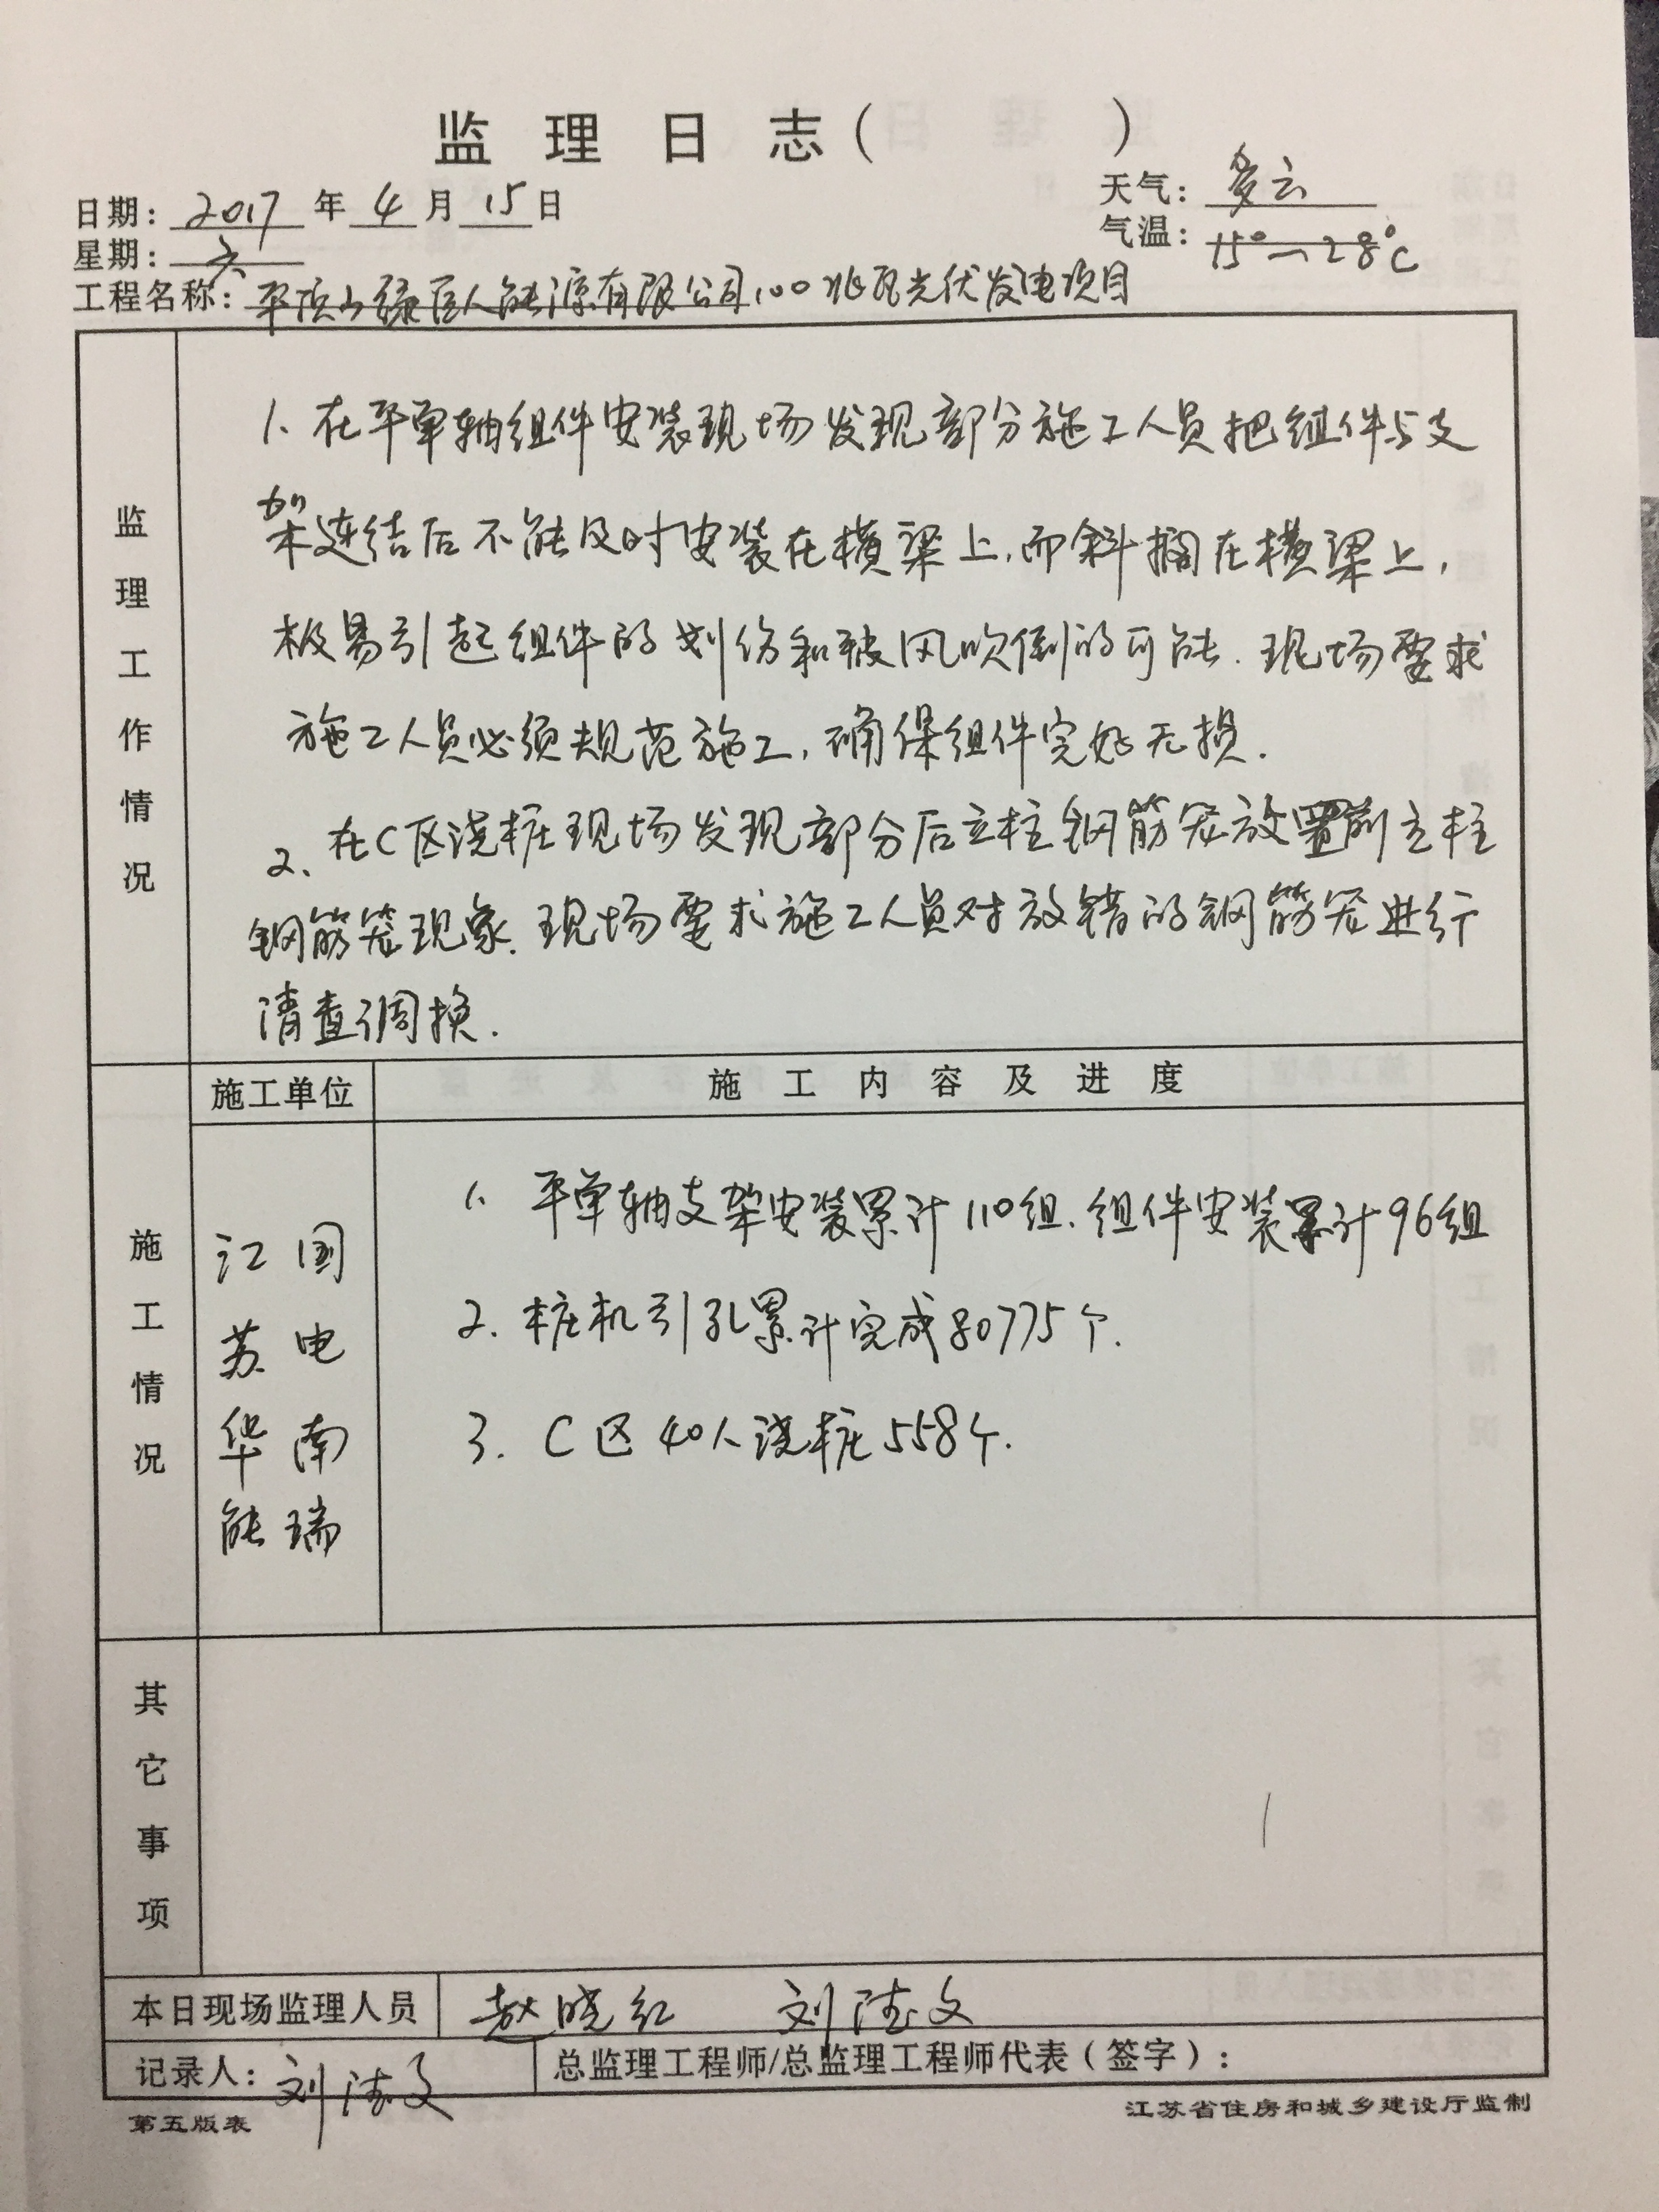 监理日志(          )
日期：2017年4月15日
天气：多云
星期：六
气温：15°～28℃
工程名称：平顶山绿巨人能源有限公司100兆瓦光伏发电项目
监理工作情况
1、在平单轴组件安装现场发现部分施工人员把组件与支
架连结后不能及时安装在横梁上，而斜搁在横梁上，
极易引起组件的划伤和被风吹倒的可能．现场要求
施工人员必须规范施工，确保组件完好无损．
2、在C区浇桩现场发现部分后立柱钢筋笼放置前立柱
钢筋笼现象．现场要求施工人员对放错的钢筋笼进行
清查调换．
施工单位
施工内容及进度
施工情况
江苏华能
国电南瑞
1、平单轴支架安装累计110组．组件安装累计96组
2．桩机引孔累计完成80775个．
3．C区40人浇桩558个．
其它事项
本日现场监理人员 赵晓红 刘德文
记录人：刘德文
总监理工程师/总监理工程师代表（签字）：
第五版表
江苏省住房和城乡建设厅监制